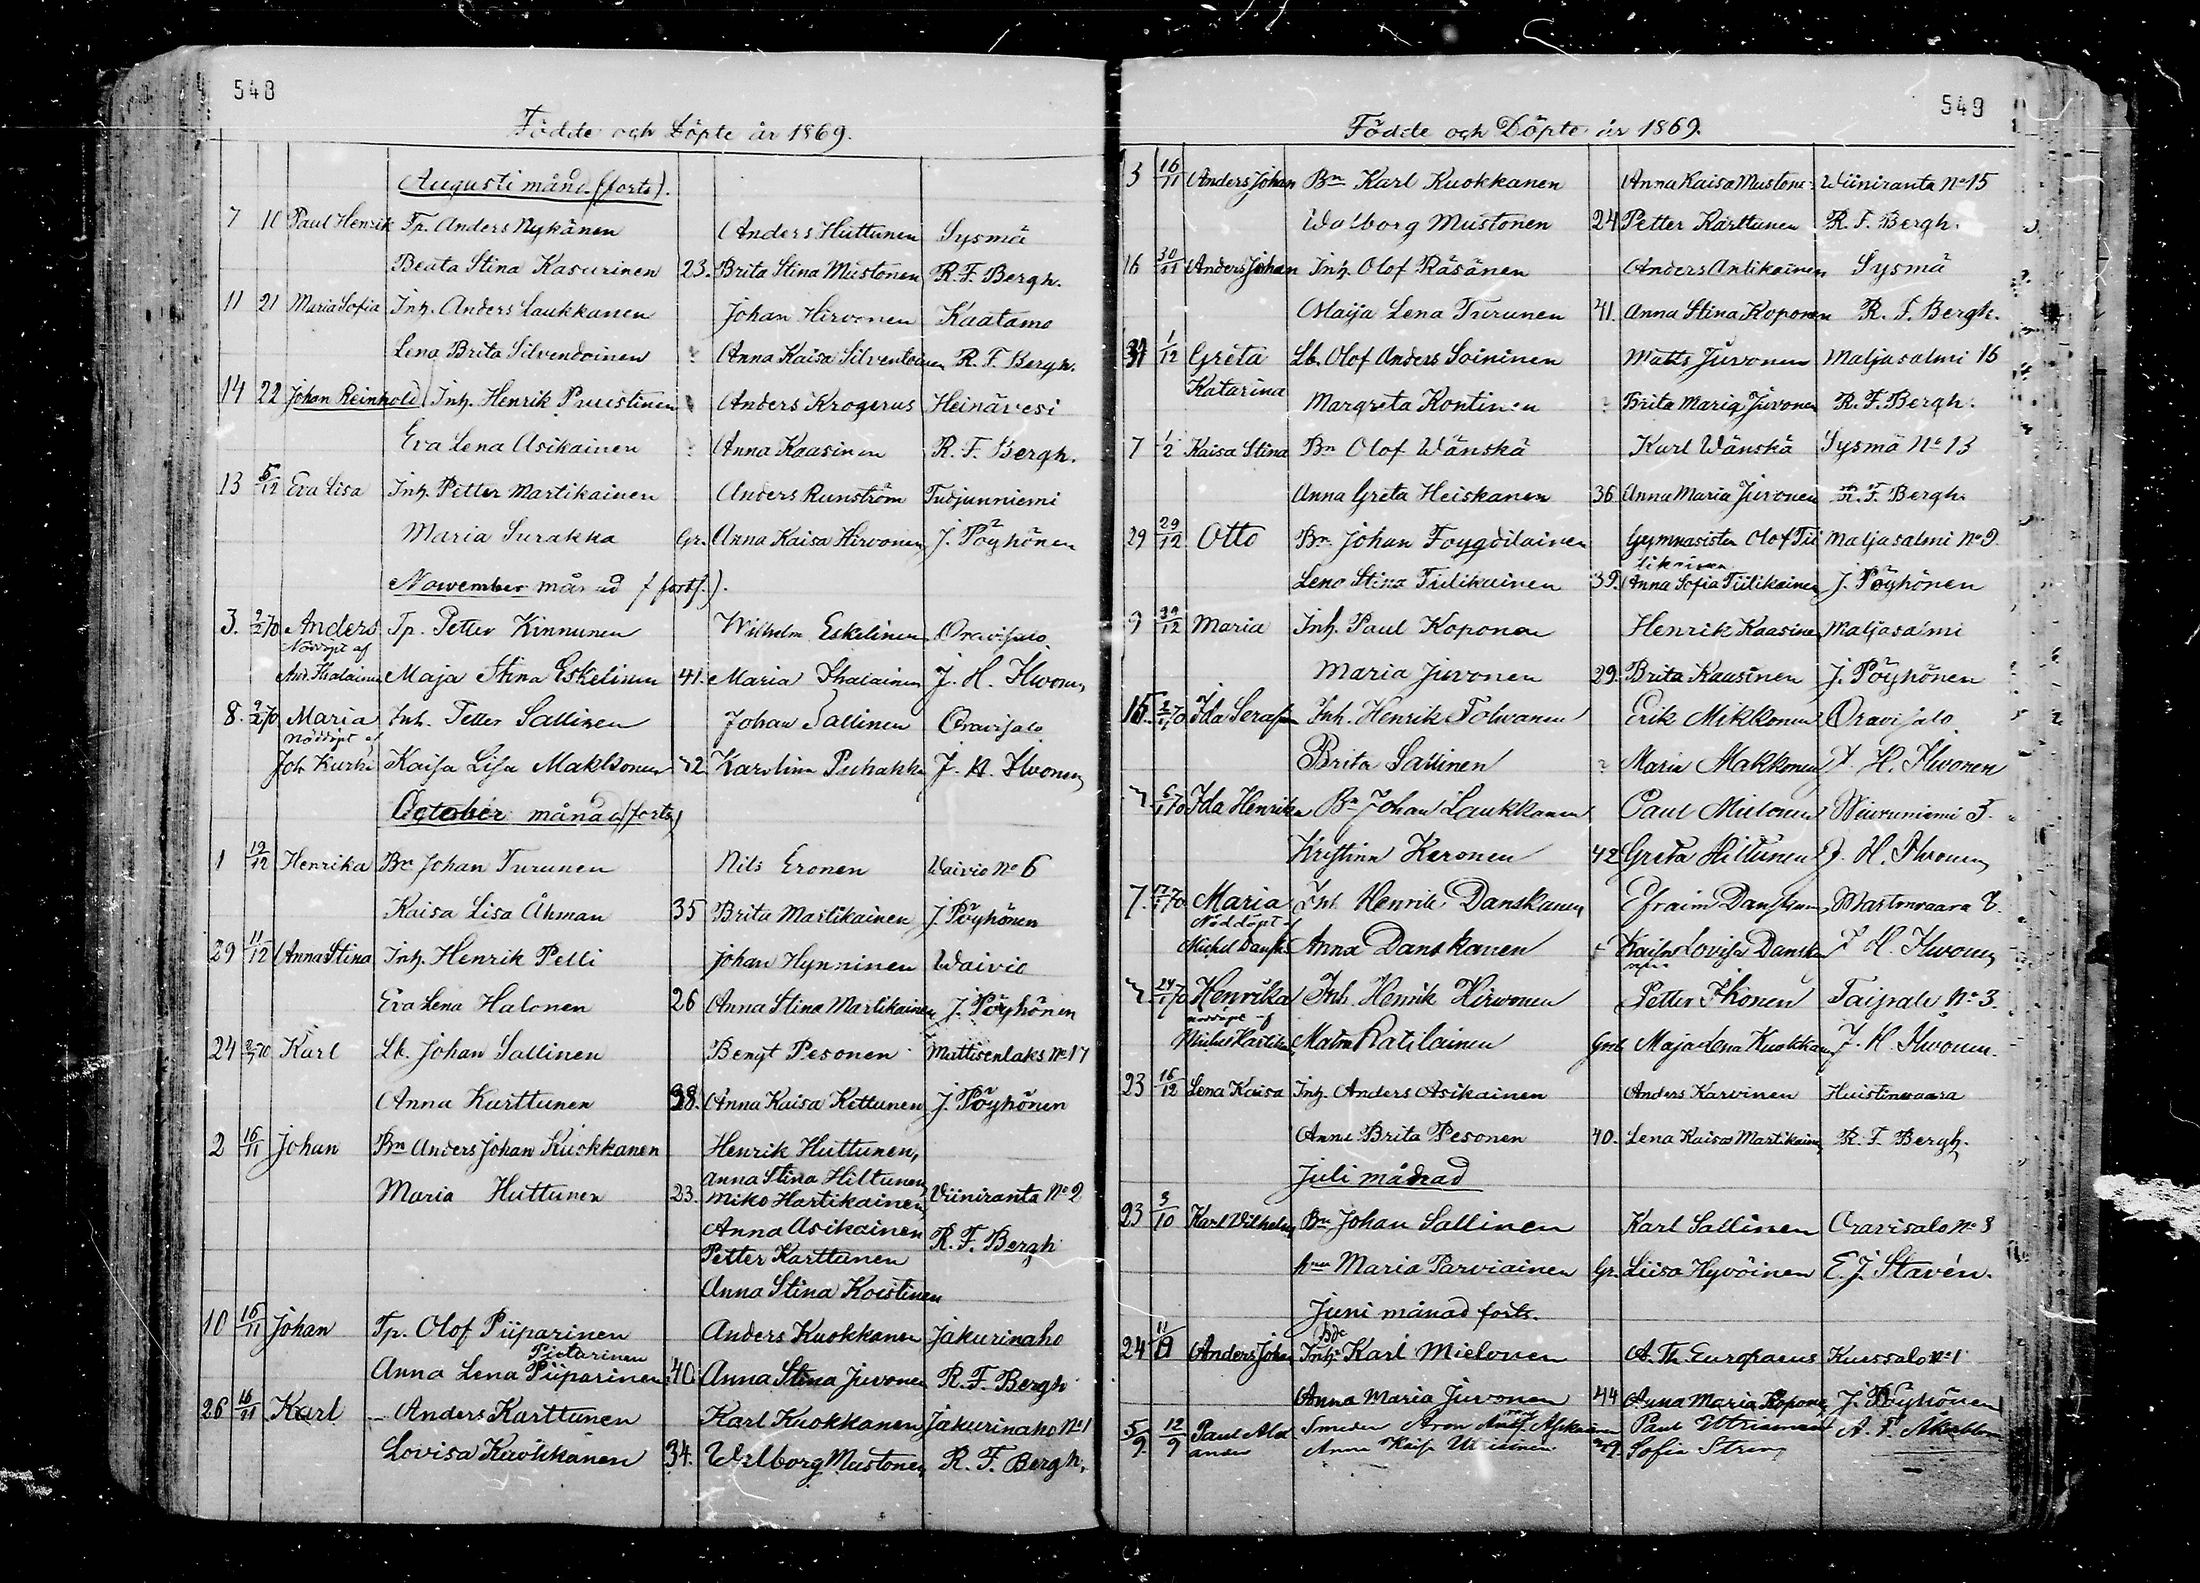 548
Födde och Döpte år 1869.
Augusti mån. (forts).
7 10 Paul Henrik Tp. Anders Nykänen Anders Huttunen Sysmä
Beata Stina Kasurinen 23. Brita Stina Mustonen R. F. Bergh.
11 21 Maria Sofia Inh. Anders Laukkanen Johan Hirvonen Kaatamo
Lena Brita Silvendoinen ? Anna Kaisa Silventoinen R. F. Bergh.
14 22 Johan Reinhold Inh. Henrik Puustinen Anders Krogerus Heinävesi
Eva Lena Asikainen ? Anna Kaasinen R. F. Bergh.
13 5/12 Eva Lisa Inh. Petter Martikainen Anders Runström Tutjunniemi
Maria Surakka Gr. Anna Kaisa Hirvonen J. Pöyhönen
November månad (forts.).
3. 9/2 70 Anders Tp. Petter Kinnunen Wilhelm Eskelinen Oravisalo
Nöddöpt af
And. Ihalainen Maja Stina Eskelinen 41. Maria Ihalainen J. H. Ilwonen
8. 9/2 70 Maria Inh. Petter Sallinen Johan Sallinen Oravisalo
nöddöpt af
Joh. Kurki Kaisa Lisa Makkonen 42. Karolina Puhakka J. H. Ilwonen
October månad (forts)
1 19/12 Henrika Bn Johan Turunen Nils Eronen Waivio No 6
Kaisa Lisa Åhman 35 Brita Martikainen J. Pöyhönen
29 11/12 Anna Stina Inh. Henrik Pelli Johan Hynninen Waivio
Eva Lena Halonen 26 Anna Stina Martikainen J. Pöyhönen
24 2/7 70 Karl Lb. Johan Sallinen Bengt Pesonen Mattisenlaks No 17
Anna Kurttunen 38. Anna Kaisa Kettunen J. Pöyhönen
2 16/11 Johan Bn Anders Johan Kuokkanen Henrik Huttunen,
Anna Stina Hiltunen,
Maria Huttunen 23. Miko Hartikainen, Viiniranta No 2
Anna Asikainen R. F. Bergh
Petter Karttunen
Anna Stina Koistinen
10 16/11 Johan Tp. Olof Piiparinen Anders Kuokkanen Jakurinaho
Pietarinen
Anna Lena Piiparinen 40. Anna Stina Juvonen R. F. Bergh
26 16/11 Karl – Anders Karttunen Karl Kuokkanen Jakurinaho No 1
Lovisa Kuokkanen 34. Walborg Mustonen R. F. Bergh.
549
Födde och Döpte år 1869.
3 16/11 Anders Johan Bn Karl Kuokkanen Anna Kaisa Mustonen Wiiniranta No 15
Walborg Mustonen 24 Petter Karttunen R. F. Bergh.
16 30/11 Anders Johan Inh. Olof Räsänen Anders Antikainen Sysmä
Maija Lena Turunen 41. Anna Stina Koponen R. F. Bergh.
31 1/12 Greta Lb. Olof Anders Soininen Matts Juvonen Maljasalmi 16
Katarina Margreta Kontinen ? Brita Maria Juvonen R. F. Bergh.
7 1/2 Kaisa Stina Bn Olof Wänskä Karl Wänskä Sysmä No 13
Anna Greta Heiskanen 36. Anna Maria Juvonen R. F. Bergh.
29 29/12 Otto Bn Johan Foygdilainen Gymnasisten Olof Tii Maljasalmi No 9
likainen
Lena Stina Tiilikainen 39. Anna Sofia Tiilikainen J. Pöyhönen
9 29/12 Maria Inh. Paul Koponen Henrik Kaasinen Maljasalmi
Maria Juvonen 29. Brita Kaasinen J. Pöyhönen
15. Ida Serafia Inh. Henrik Tolwanen Erik Mikkonen Oravisalo
Brita Sallinen ? Maria Makkonen J. H. Ilwonen
6/1 70 Ida Henrika Bn Johan Laukkanen Paul Mielonen
Kristina Keronen 42 Greta Hiltunen J. H. Ilwonen
7. 17/1 70 Maria Inh. Henrik Danskanen Efraim Danskanen Martonvaara 8.
Nöddöpt af
Michel Dansk Anna Danskanen Kaisa Lovisa Danska J. H. Ilwonen
nen
24/1 70 Henrika Inh. Henrik Hirwonen Petter Ikonen Taipale No 3.
nöddöpt af
Malin Ratilainen Maja Lena Kuokkanen J. H. Ilwonen.
23 16/12 Lena Kaisa Inh. Anders Asikainen Anders Karvinen Huistinvaara
Anna Brita Pesonen 40. Lena Kaisa Martikainen R. F. Bergh.
Juli månad
23 3/10 Karl Vilhelm Bn Johan Sallinen Karl Sallinen Oravisalo No 8
hnu Maria Parviainen Gr. Liisa Hyvöinen E. J. Stavén.
Juni månad forts.
24 11/9 Anders Johan Inh. Karl Mielonen A. Th. Europaeus Kuussalo No 1
Anna Maria Juvonen 44 Anna Maria Koponen J. Pöyhönen
5/9. 12/9 Paul Alex Smeden Aron Asikainen Paul Utriainen
ander Anna Kaisa Utriainen Sofia Streng